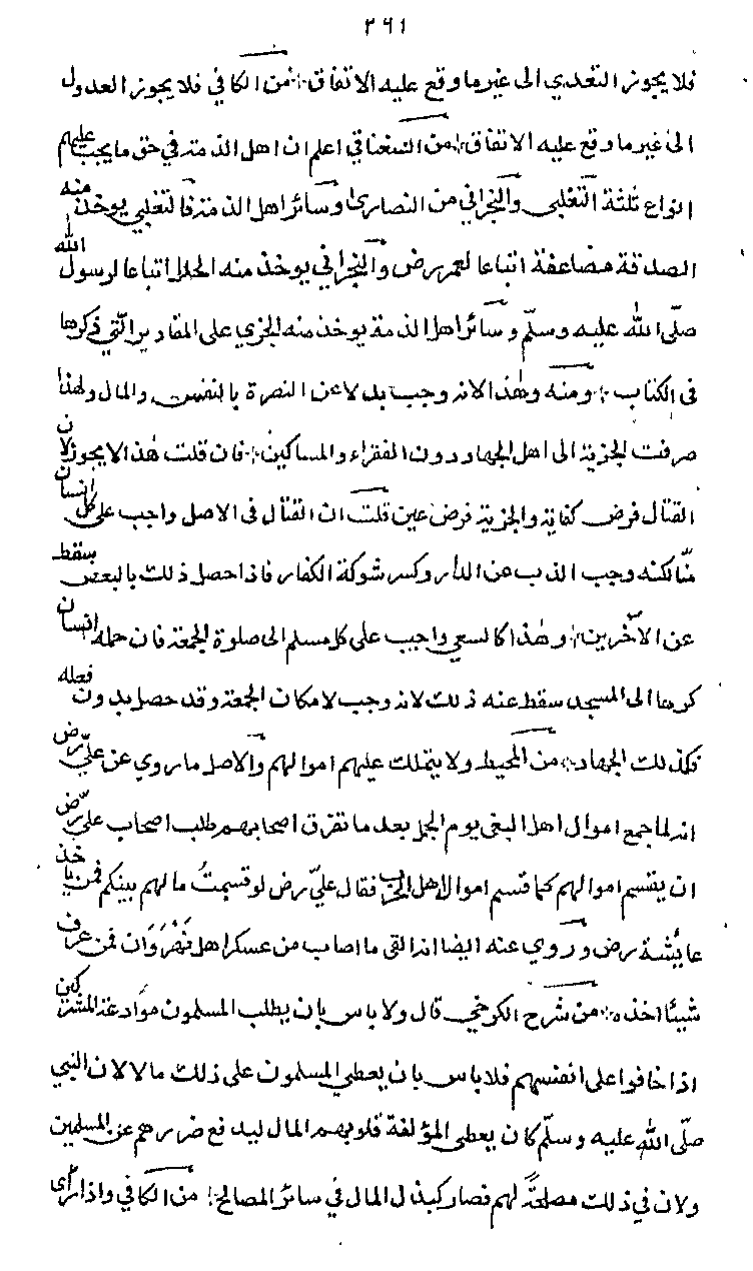 ٣٩١
فلا يجوز التعدي الى غير ما وقع عليه الاتفاق من الكافي فلا يجوز العدول
الى غير ما وقع عليه الاتفاق من السغناقي اعلم ان اهل الذمة في حق ما يجب عليهم
انواع ثلثة التغلبي والنجراني من النصارى وسائر اهل الذمة فالتغلبي يوخذ منه
الصدقة مضاعفة اتباعا لعمر رض والنجراني يوخذ منه الحلل اتباعا لرسول الله
صلّى الله عليه وسلّم وسائر اهل الذمة يوخذ منه الجزي على المقادير الّتي ذكرها
في الكتاب ومنه وهذا لانه وجب بدلا عن النصرة بالنفس والمال ولهذا
صرفت الجزية الى اهل الجهاد دون الفقراء والمساكين فان قلت هذا لا يجوز لان
القتال فرض كفاية والجزية فرض عين قلت ان القتال في الاصل واجب على كل انسان
منّا لكنه وجب الذب عن الدار وكسر شوكة الكفار فاذا حصل ذلك بالبعض سقط
عن الآخرين وهذا كالسعي واجب على كل مسلم الى صلوة الجمعة فان حمله انسان
كرها الى المسجد سقط عنه ذلك لانه وجب لامكان الجمعة وقد حصل بدون فعله
فكذلك الجهاد من المحيط ولا يتملك عليهم اموالهم والاصل ما روي عن عليّ رض
انه لما جمع اموال اهل البغي يوم الجمل بعد ما تفرق اصحابهم طلب اصحاب عليّ رض
ان يقسم اموالهم كما قسم اموال اهل الحرب فقال عليّ رض لو قسمتُ ما لهم بينكم فمن ياخذ
عايشة رض وروي عنه ايضا انه القى ما اصاب من عسكر اهل نَهْرَوَان فمن عرف
شيئا اخذه من شرح الكرخي قال ولا باس بان يطلب المسلمون موادعة المشركين
اذا خافوا على انفسهم فلا باس بان يعطي المسلمون على ذلك مالا لان النبي
صلّى الله عليه وسلّم كان يعطي المؤلفة قلوبهم المال ليدفع ضررهم عن المسلمين
ولان في ذلك مصلحةً لهم فصار كبذل المال في سائر المصالح من الكافي واذا رأى